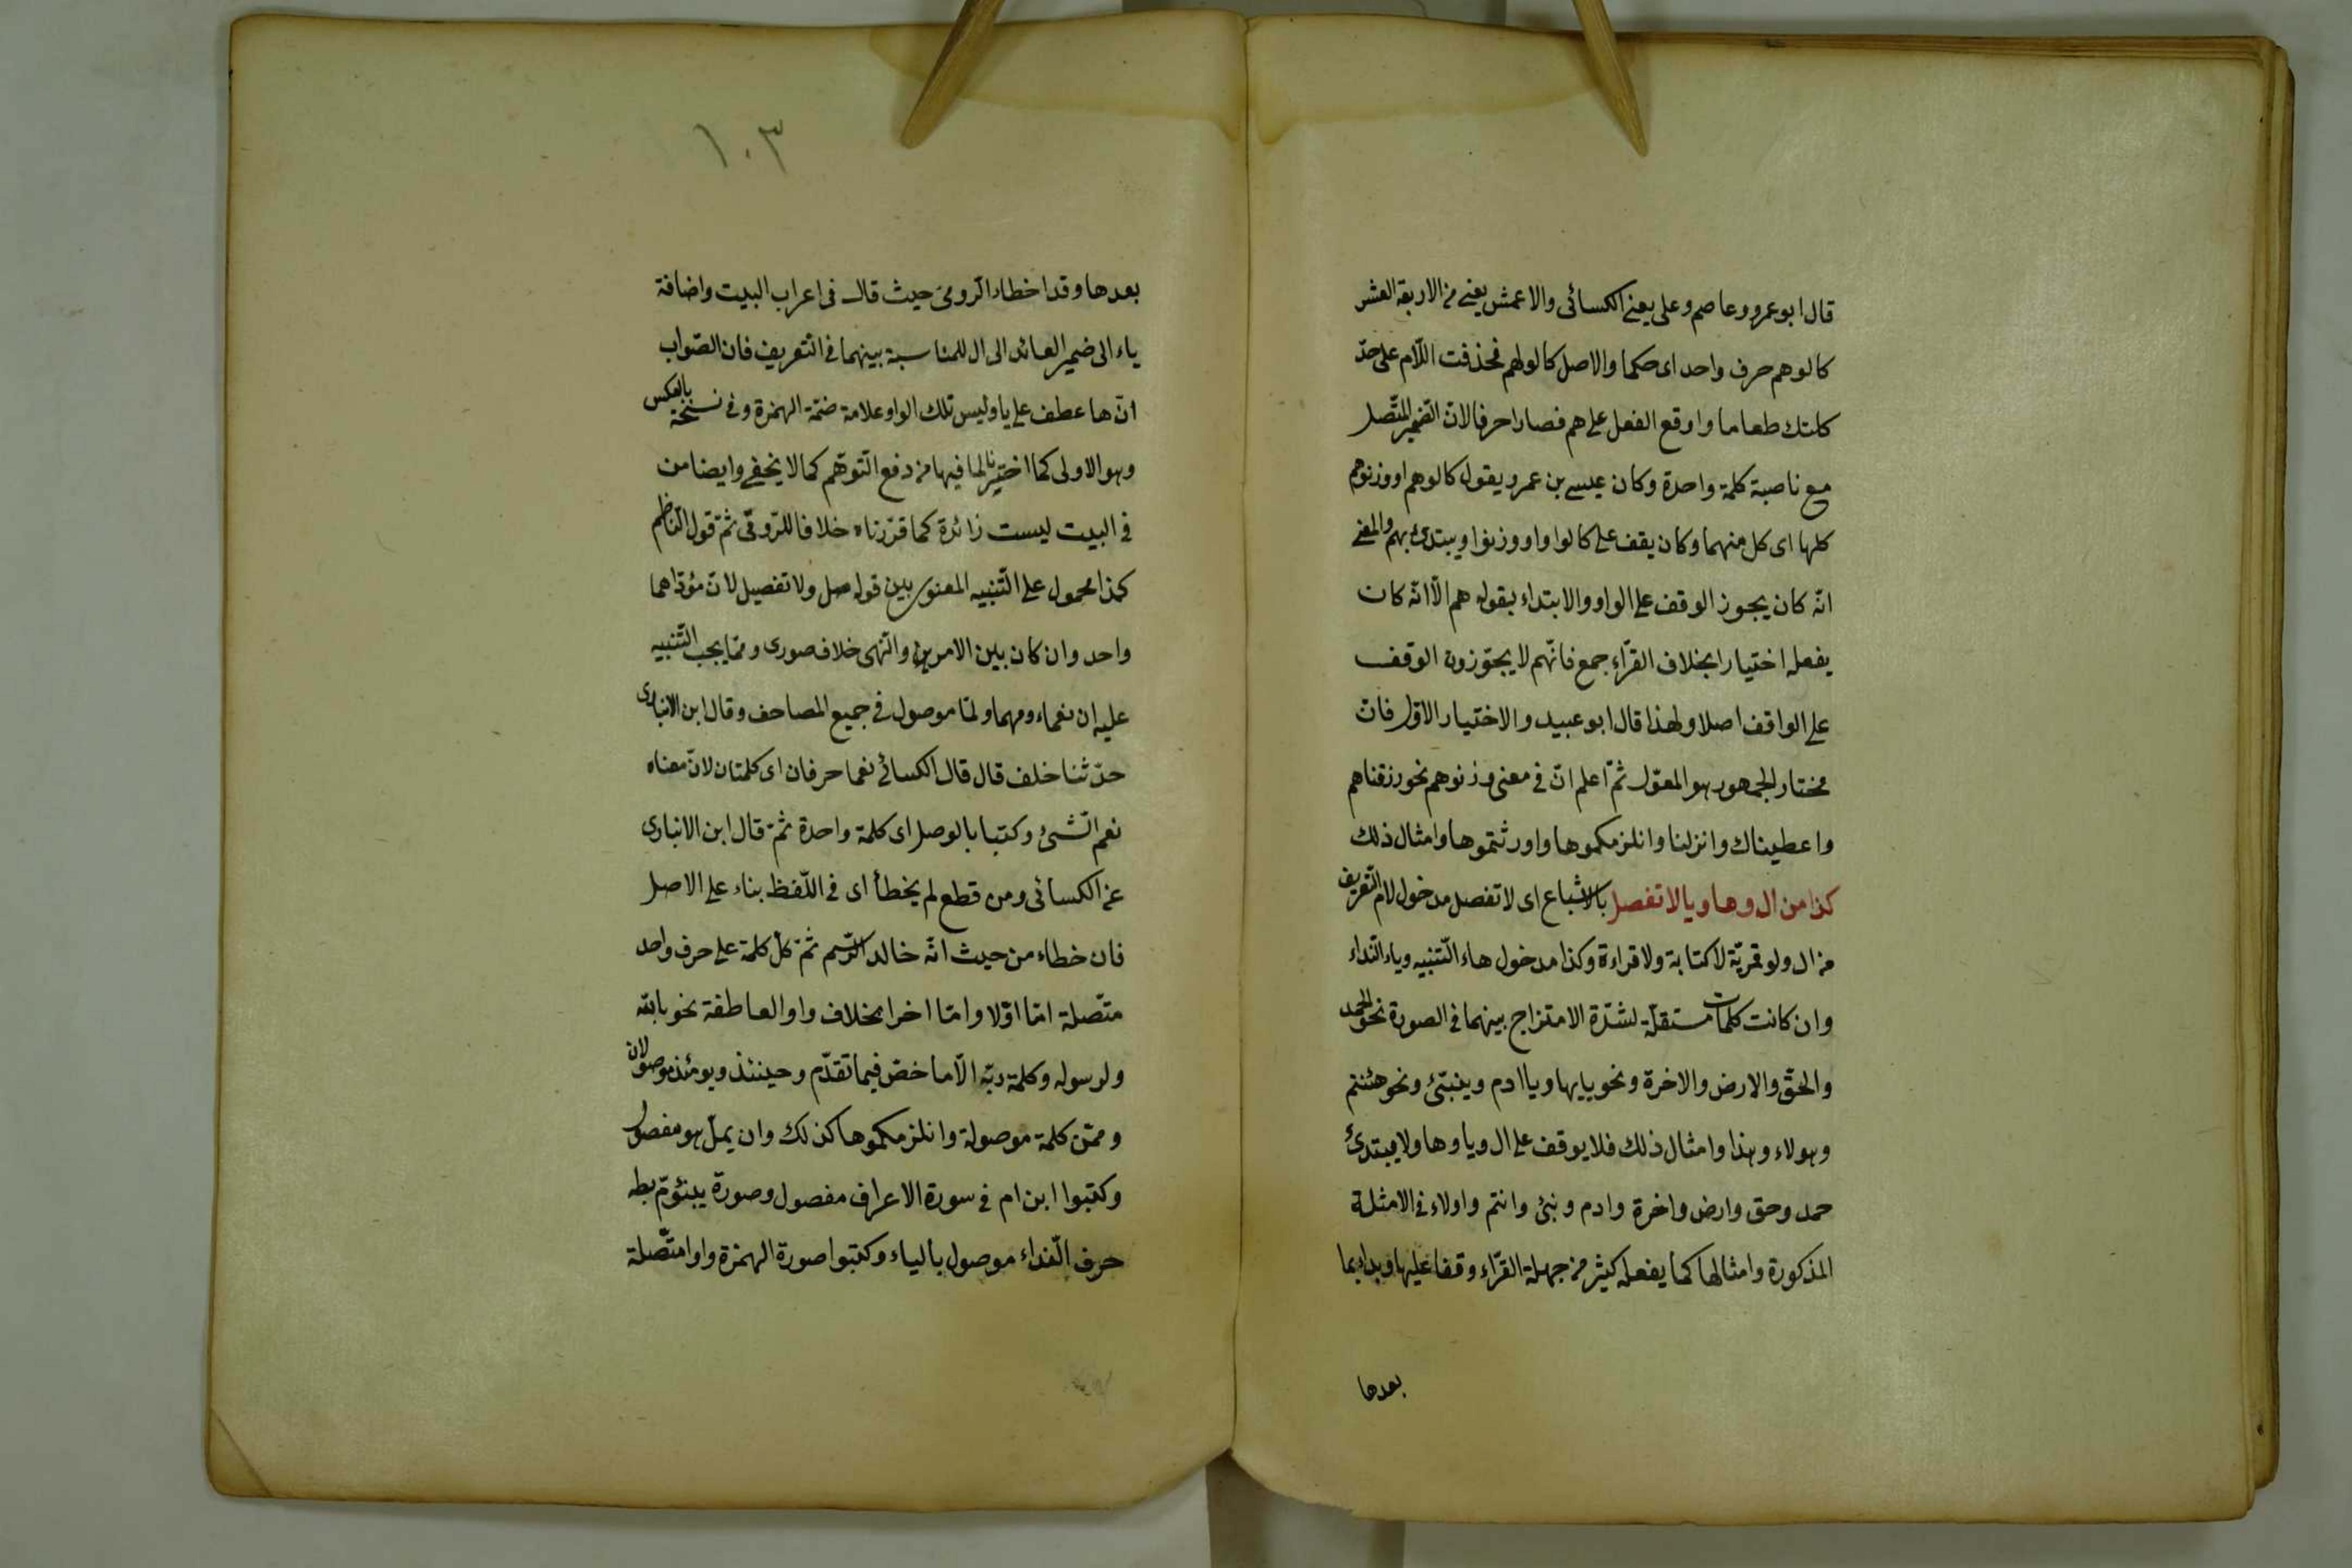 قال ابو عمرو وعاصم وعلى يعنى الكسائى والاعمش يعنى من الاربعة العشر
كالوهم حرف واحد اى حكما والاصل كالوا لهم فحذفت اللام على حدّ
كلتك طعاما واوقع الفعل على هم فصارا حرفا لانّ الضمير المتّصل
مع ناصبة كلمة واحدة وكان عيسى بن عمرو يقول كالوهم او وزنوهم
كلها اى كل منهما وكان يقف على كالوا واو وزنوا ويبتدئ بهم والمعنى
انّه كان يجوز الوقف على الواو والابتداء بقوله هم الّا انّه كان
يفعله اختيارا بخلاف القرّاء جمع فانّهم لا يجوّزون الوقف
على الواقف اصلا ولهذا قال ابو عبيد والاختيار الاوّل فان
مختار الجمهور هو المعوّل ثمّ اعلم انّ فى معنى وزنوهم نحو رزقناهم
واعطيناك وانزلنا وانلزمكموها واورثتموها وامثال ذلك
كذا من ال وها ويا لا تفصل بالاشباع اى لا تفصل مدخول لام التّعريف
من ال ولو قمريّة لا كتابة ولا قراءة وكذا مدخول هاء التّنبيه وياء النّداء
وان كانت كلمات مستقلّة لشدّة الامتزاج بينهما فى الصورة نحو الحمد
والحقّ والارض والاخرة ونحو يايها ويا ادم وينبئ ونحو هئنتم
وهولاء وهذا وامثال ذلك فلا يوقف على ال ويا وها ولا يبتدئ
حمد وحق وارض واخرة وادم وبنئ وانتم واولاء فى الامثلة
المذكورة وامثالها كما يفعله كثير من جهلة القرّاء وقفا عليها وبداء بما
بعدها
١٠٣
بعدها وقد اخطاء الرومى حيث قال فى اعراب البيت واضافة
ياء الى ضمير العائد الى ال للمناسبة بينهما فى التّعريف فان الصّواب
انّ ها عطف على يا وليس تلك الواو علامة ضمّة الهمزة وفى نسخة بالعكس
وهو الاولى كما اختيرنا لما فيها من دفع التّوهّم كما لا يخفى وايضا من
فى البيت ليست زائدة كما قرّرناه خلافا للرّومّى ثمّ قول النّاظم
كذا محمول على التّنبيه المعنوى بين قوله صل ولا تفصيل لانّ مؤدّاهما
واحد وان كان بين الامرين والنّهى خلاف صورى وممّا يجب التّنبيه
عليه ان نعماء ومهما ولمّا موصول فى جميع المصاحف وقال ابن الانبارى
حدّثنا خلف قال قال الكسائى نعما حرفان اى كلمتان لانّ معناه
نعم الشّئ وكتبا بالوصل اى كلمة واحدة ثمّ قال ابن الانبارى
عن الكسائى ومن قطع لم يخطأ اى فى اللّفظ بناء على الاصل
فان خطاء من حيث انّه خالد الرّسم ثمّ كلّ كلمة على حرف واحد
متّصلة امّا اوّلا وامّا اخرا بخلاف واو العاطفة نحو بالله
ولرسوله وكلمة ربّه الّا ما خصّ فيما تقدّم وحينئذ ويومئذ موصولان
وممّن كلمة موصولة وانلزمكموها كذلك وان يملّ هو مفصول
وكتبوا ابن ام فى سورة الاعراف مفصول وصورة يبنؤمّ بطه
حرف النّداء موصول بالياء وكتبوا صورة الهمزة واوا متّصلة